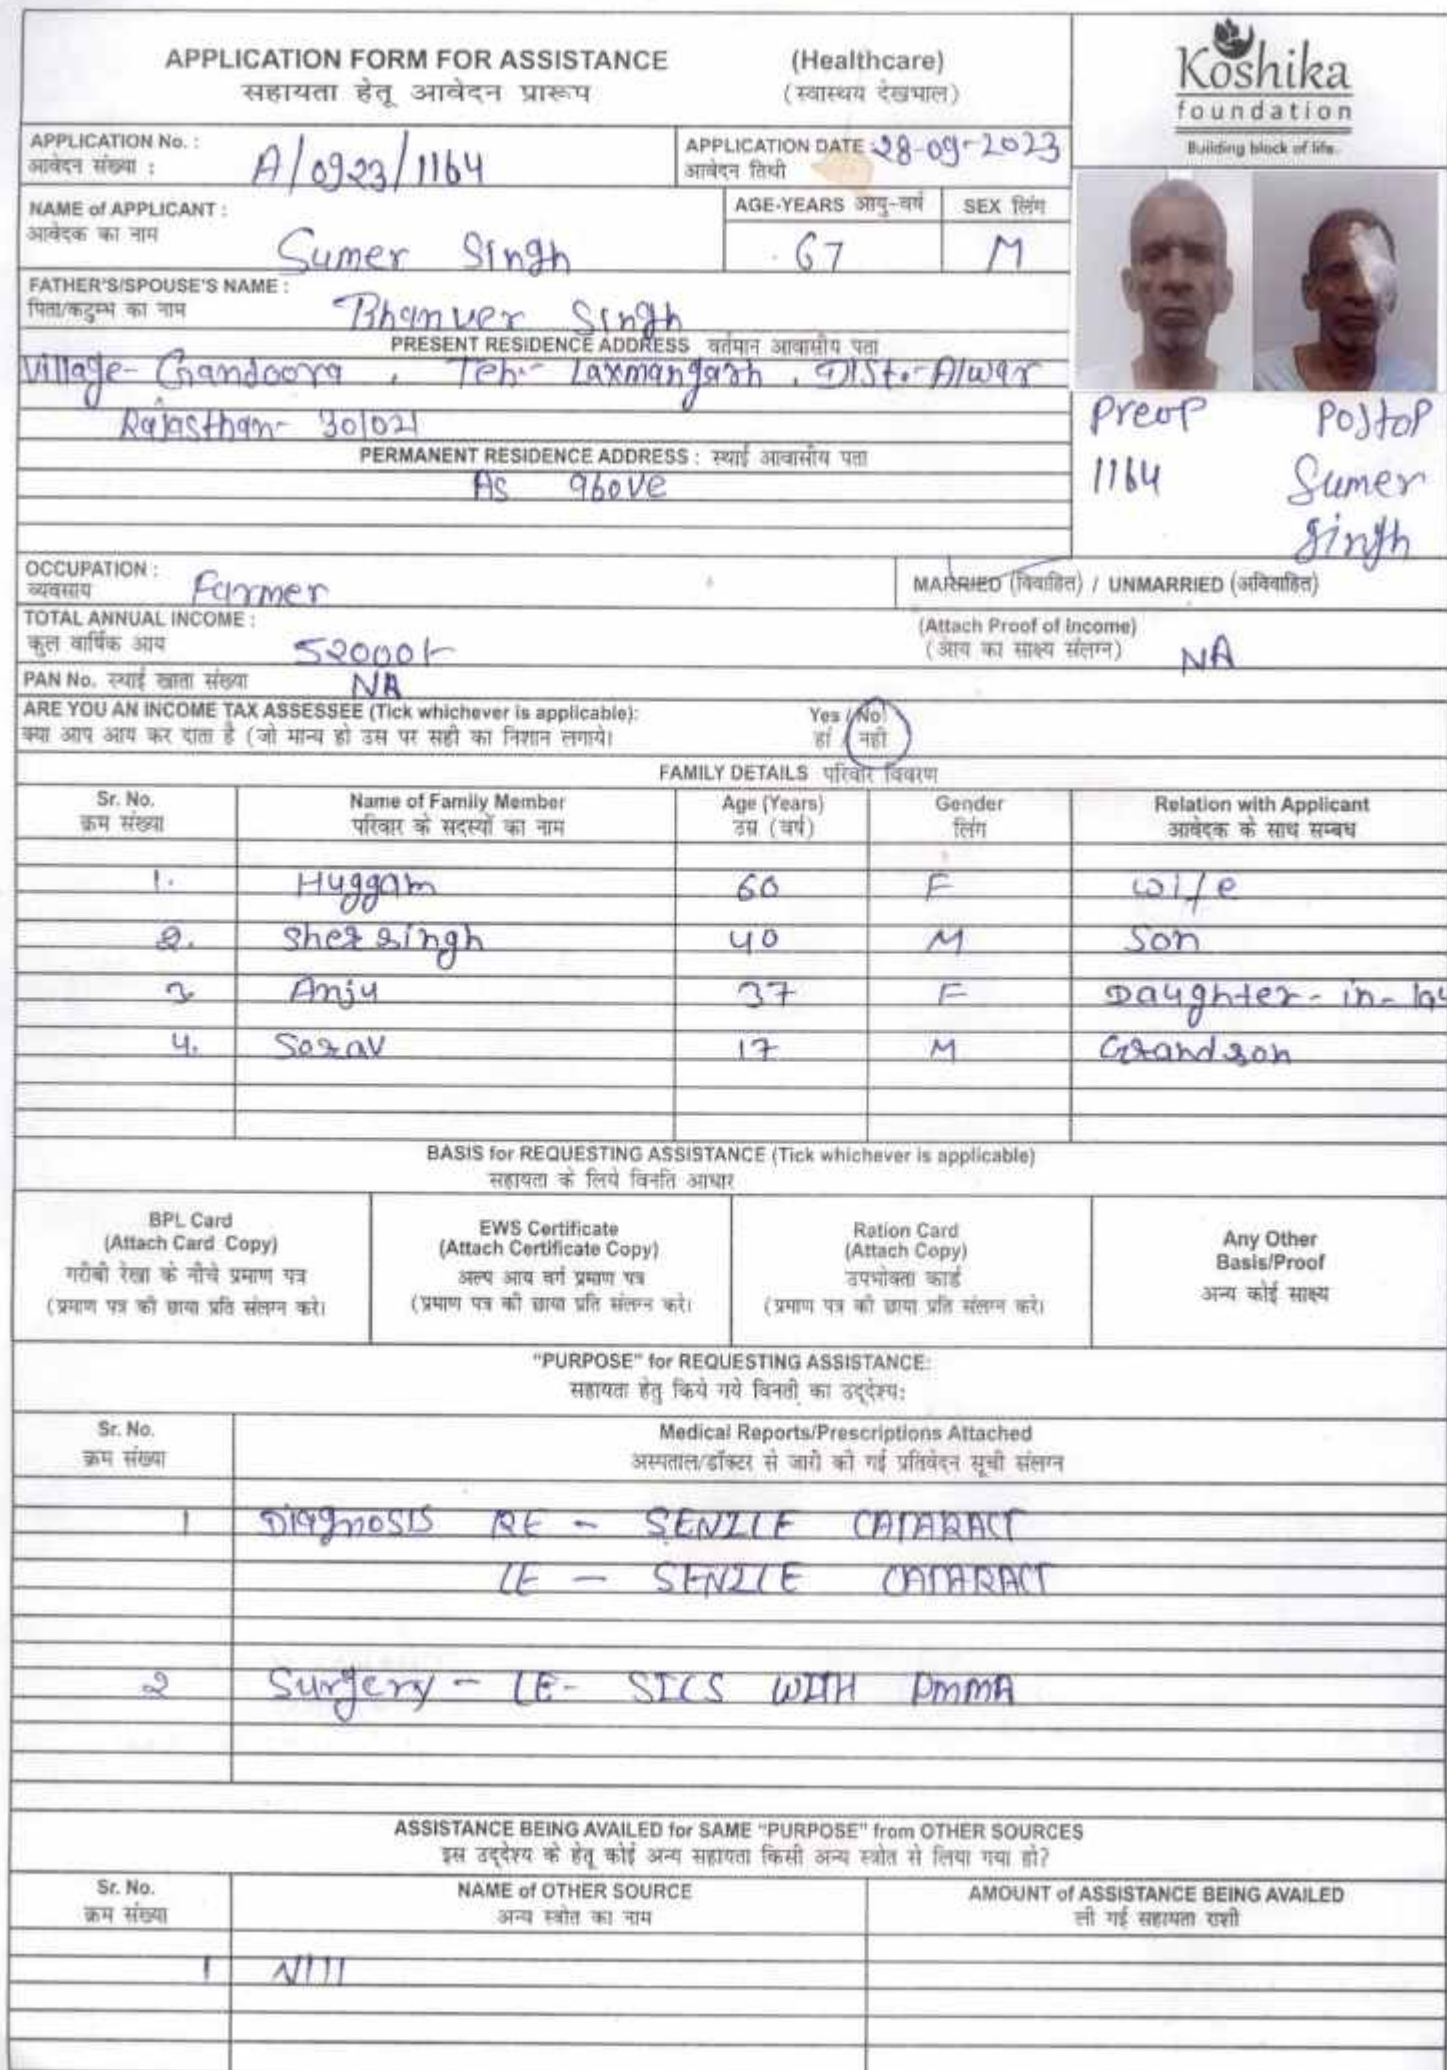 APPLICATION FORM FOR ASSISTANCE (Healthcare)
सहायता हेतू आवेदन प्रारूप (स्वास्थय देखभाल)
Koshika
foundation
Building block of life.
APPLICATION No. : A/0923/1164
आवेदन संख्या :
APPLICATION DATE : 28-09-2023
आवेदन तिथी
NAME of APPLICANT : Sumer Singh
आवेदक का नाम
AGE-YEARS आयु-वर्ष 67
SEX लिंग M
FATHER'S/SPOUSE'S NAME : Bhanver Singh
पिता/कटुम्भ का नाम
PRESENT RESIDENCE ADDRESS वर्तमान आवासीय पता
Village- Chandoora , Teh:- Laxmangarh , Dist.- Alwar
Rajasthan- 301021
PERMANENT RESIDENCE ADDRESS : स्थाई आवासीय पता
As above
Preop Postop
1164 Sumer
Singh
OCCUPATION : Farmer
व्यवसाय
MARRIED (विवाहित) / UNMARRIED (अविवाहित)
TOTAL ANNUAL INCOME : 52000/-
कुल वार्षिक आय
(Attach Proof of Income) NA
(आय का साक्ष्य संलग्न)
PAN No. स्थाई खाता संख्या NA
ARE YOU AN INCOME TAX ASSESSEE (Tick whichever is applicable): Yes / No
क्या आप आय कर दाता है (जो मान्य हो उस पर सही का निशान लगाये। हां / नही
FAMILY DETAILS परिवार विवरण
Sr. No. Name of Family Member Age (Years) Gender Relation with Applicant
क्रम संख्या परिवार के सदस्यों का नाम उम्र (वर्ष) लिंग आवेदक के साथ सम्बध
1. Huggam 60 F wife
2. Sher singh 40 M Son
3 Anju 37 F Daughter-in-la
4. Sorav 17 M Grandson
BASIS for REQUESTING ASSISTANCE (Tick whichever is applicable)
सहायता के लिये विनति आधार
BPL Card
(Attach Card Copy)
गरीबी रेखा के नीचे प्रमाण पत्र
(प्रमाण पत्र की छाया प्रति संलग्न करे।
EWS Certificate
(Attach Certificate Copy)
अल्प आय वर्ग प्रमाण पत्र
(प्रमाण पत्र की छाया प्रति संलग्न करे।
Ration Card
(Attach Copy)
उपभोक्ता कार्ड
(प्रमाण पत्र की छाया प्रति संलग्न करे।
Any Other
Basis/Proof
अन्य कोई साक्ष्य
"PURPOSE" for REQUESTING ASSISTANCE:
सहायता हेतु किये गये विनती का उद्देश्य:
Sr. No. Medical Reports/Prescriptions Attached
क्रम संख्या अस्पताल/डॉक्टर से जारी की गई प्रतिवेदन सूची संलग्न
1 Diagnosis RE - SENILE CATARACT
LE - SENILE CATARACT
2 Surgery - LE- SICS WITH PMMA
ASSISTANCE BEING AVAILED for SAME "PURPOSE" from OTHER SOURCES
इस उद्देश्य के हेतू कोई अन्य सहायता किसी अन्य स्त्रोत से लिया गया हो?
Sr. No. NAME of OTHER SOURCE AMOUNT of ASSISTANCE BEING AVAILED
क्रम संख्या अन्य स्त्रोत का नाम ली गई सहायता राशी
1 Nill